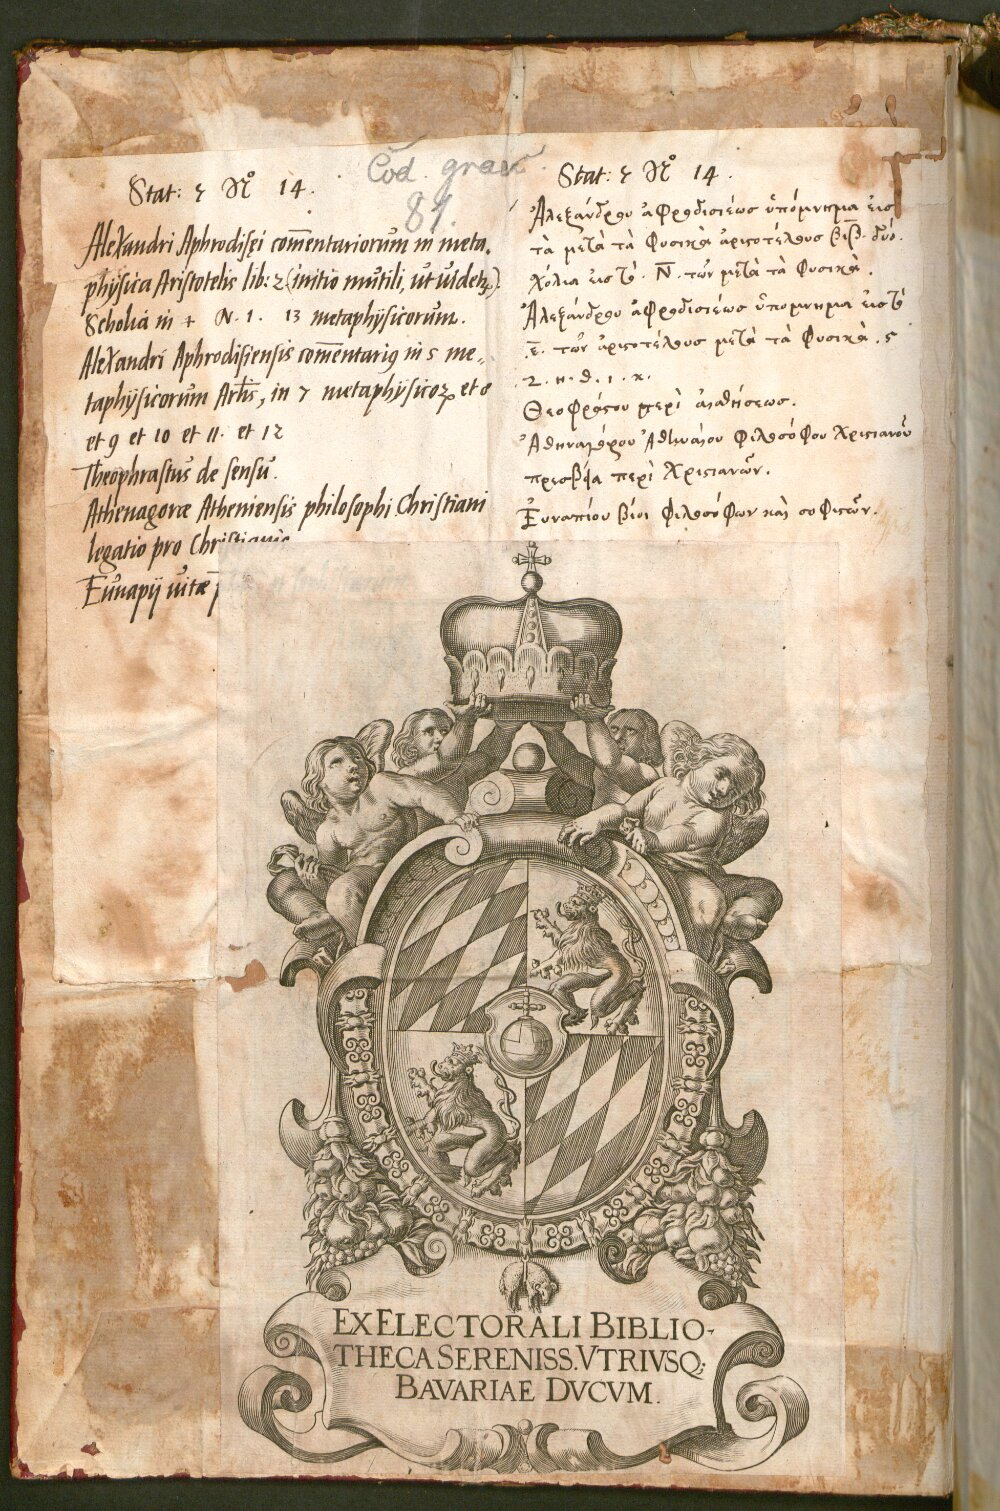 Cod. graec.
81.
Stat: ξ Nº 14.
Alexandri Aphrodisęi com̄entariorum in meta.
physica Aristotelis lib: 2 (initio mutili, ut uidetꝛ).
Scholia in + N. 1. 13 metaphysicorum.
Alexandri Aphrodisiensis com̄entariꝰ in 5 me„
taphysicorum Artl̄is, in 7 metaphysicoꝝ et 8
et 9 et 10 et 11. et 12
Theophrastus de sensu.
Athenagorae Atheniensis philosophi Christiani
legatio pro Christianis
Eunapij uitae
Stat: ξ Nº 14.
Ἀλεξάνδρου ἀφροδισιέως ὑπόμνημα εἰσ
τὰ μετὰ τὰ Φυσικὰ ἀριστοτέλους βιβ̄. δύο.
χόλια εἰσ τὸ. Ν̄. τῶν μετὰ τὰ Φυσικὰ.
Ἀλεξάνδρου ἀφροδισιέως ὑπομνημα εἰσ τὸ
.ε̄. τῶν ἀριστοτέλους μετὰ τὰ Φυσικὰ. ς
.ζ. η. θ. ι. κ.
Θεοφράστου περὶ αἰσθήσεως.
Ἀθηναγόρου Ἀθηναίου φιλοσόφου χριστιανοῦ
πρεσβεία περὶ χριστιανῶν.
Εὐναπίου βίοι φιλοσόφων καὶ σοφιστῶν.
EX ELECTORALI BIBLIO-
THECA SERENISS. VTRIVSQ;
BAVARIAE DVCVM.